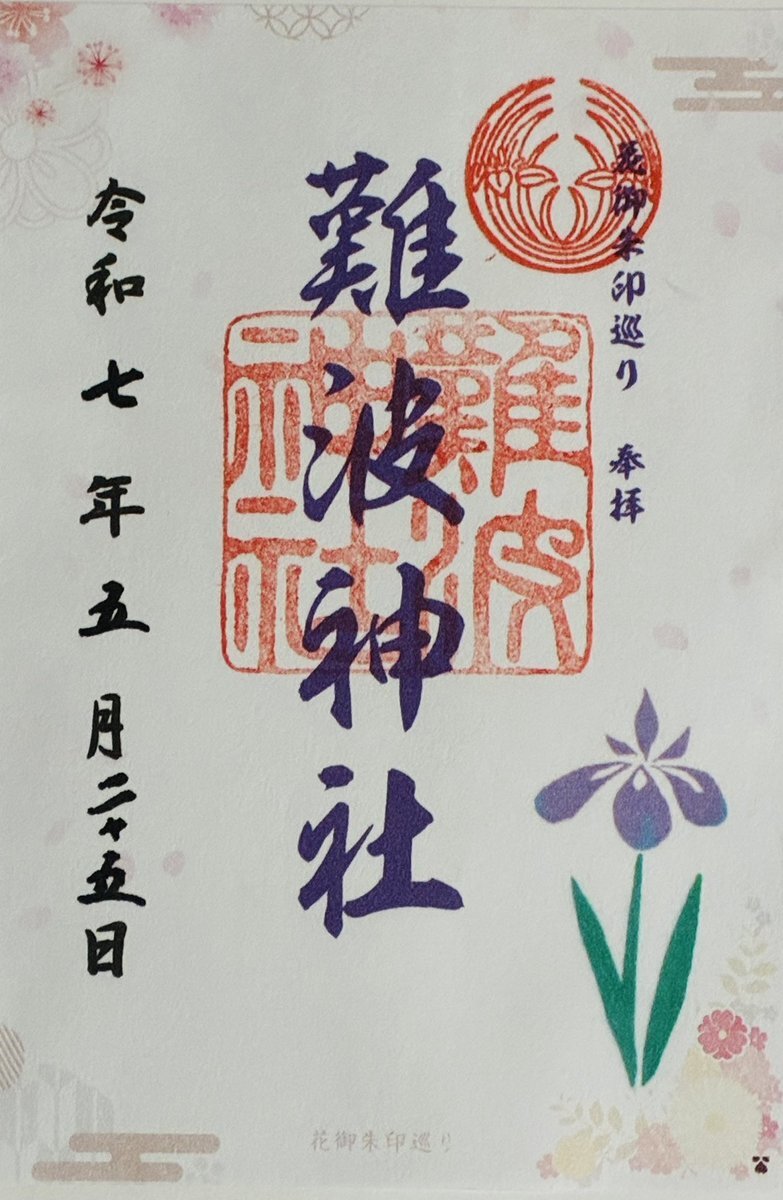 花御朱印巡り 奉拝
難波神社
難波神社
令和七年五月二十五日
花御朱印巡り